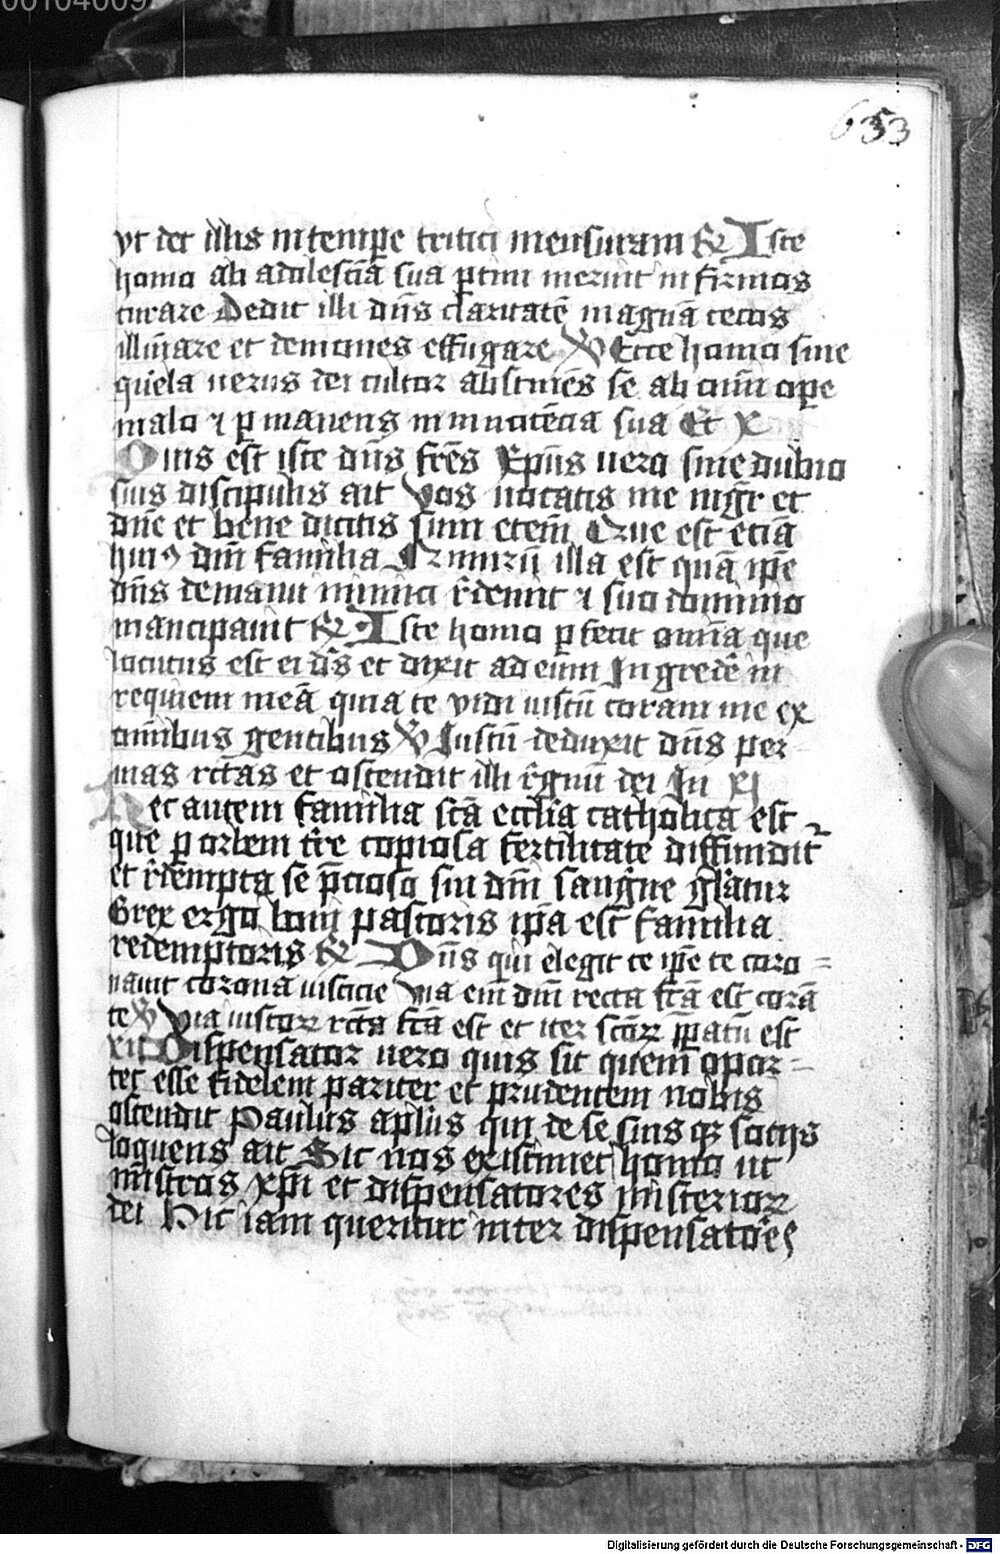 00104009
653
vt det illis in tempe͛ tritici mensuram ℟ Iste
homo ab adolescēa sua ptim meruit infirmos
curare Dedit illi dn̄s claritatē magnā cecos
illūare et demones effugare ℣ Ecce homo sine
quela uerus dei cultor abstinēs se ab omī ope
malo ⁊ pmanens in innocēcia sua Et X
Quis est iste dn̄s frēs Xpūs uero sine dubio
suis discipulis ait Vos uocatis me mgr̄ et
dn̄e et bene dicitis sum etem̄ Que est eciā
huiꝰ dnī familia Nimirū illa est quā ip̄e
dn̄s de manu inimici r̄demit ⁊ suo dominio
mancipauit ℟ Iste homo pfecit omīa que
locutus est ei ds̄ et dixit ad eum Ingredē in
requiem meā quia te vidi iustū coram me ex
omībus gentibus ℣ Iustū deduxit dn̄s per
uias rc̄tas et ostendit illi r̄gnū dei In XI
Hec autem familia sc̄a eccl̄ia catholica est
que p orbem tr̄e copiosa fertilitate diffundit̃
et r̄dempta se p̄cioso sui dnī sangīne gl̄atur
Grex ergo boni pastoris ip̄a est familia
redemptoris ℟ Dn̄s qui elegit te ip̄e te coro=
nauit corona iusticie Via em̄ dnī recta fc̄ā est corā
te ℣ Via iustoꝝ rc̄tā fc̄ā est et iter scōꝝ p̄patū est
xij Dispensator uero quis sit quem opor=
tet esse fidelem pariter et prudentem nobis
ostendit Paulus apl̄us qui de se suisqꝫ socijs
loquens ait Sic nos existimet homo ut
mīstros xp̄i et dispensatores misterioꝝ
dei Hic iam queritur inter dispensatōes
Digitalisierung gefördert durch die Deutsche Forschungsgemeinschaft - DFG